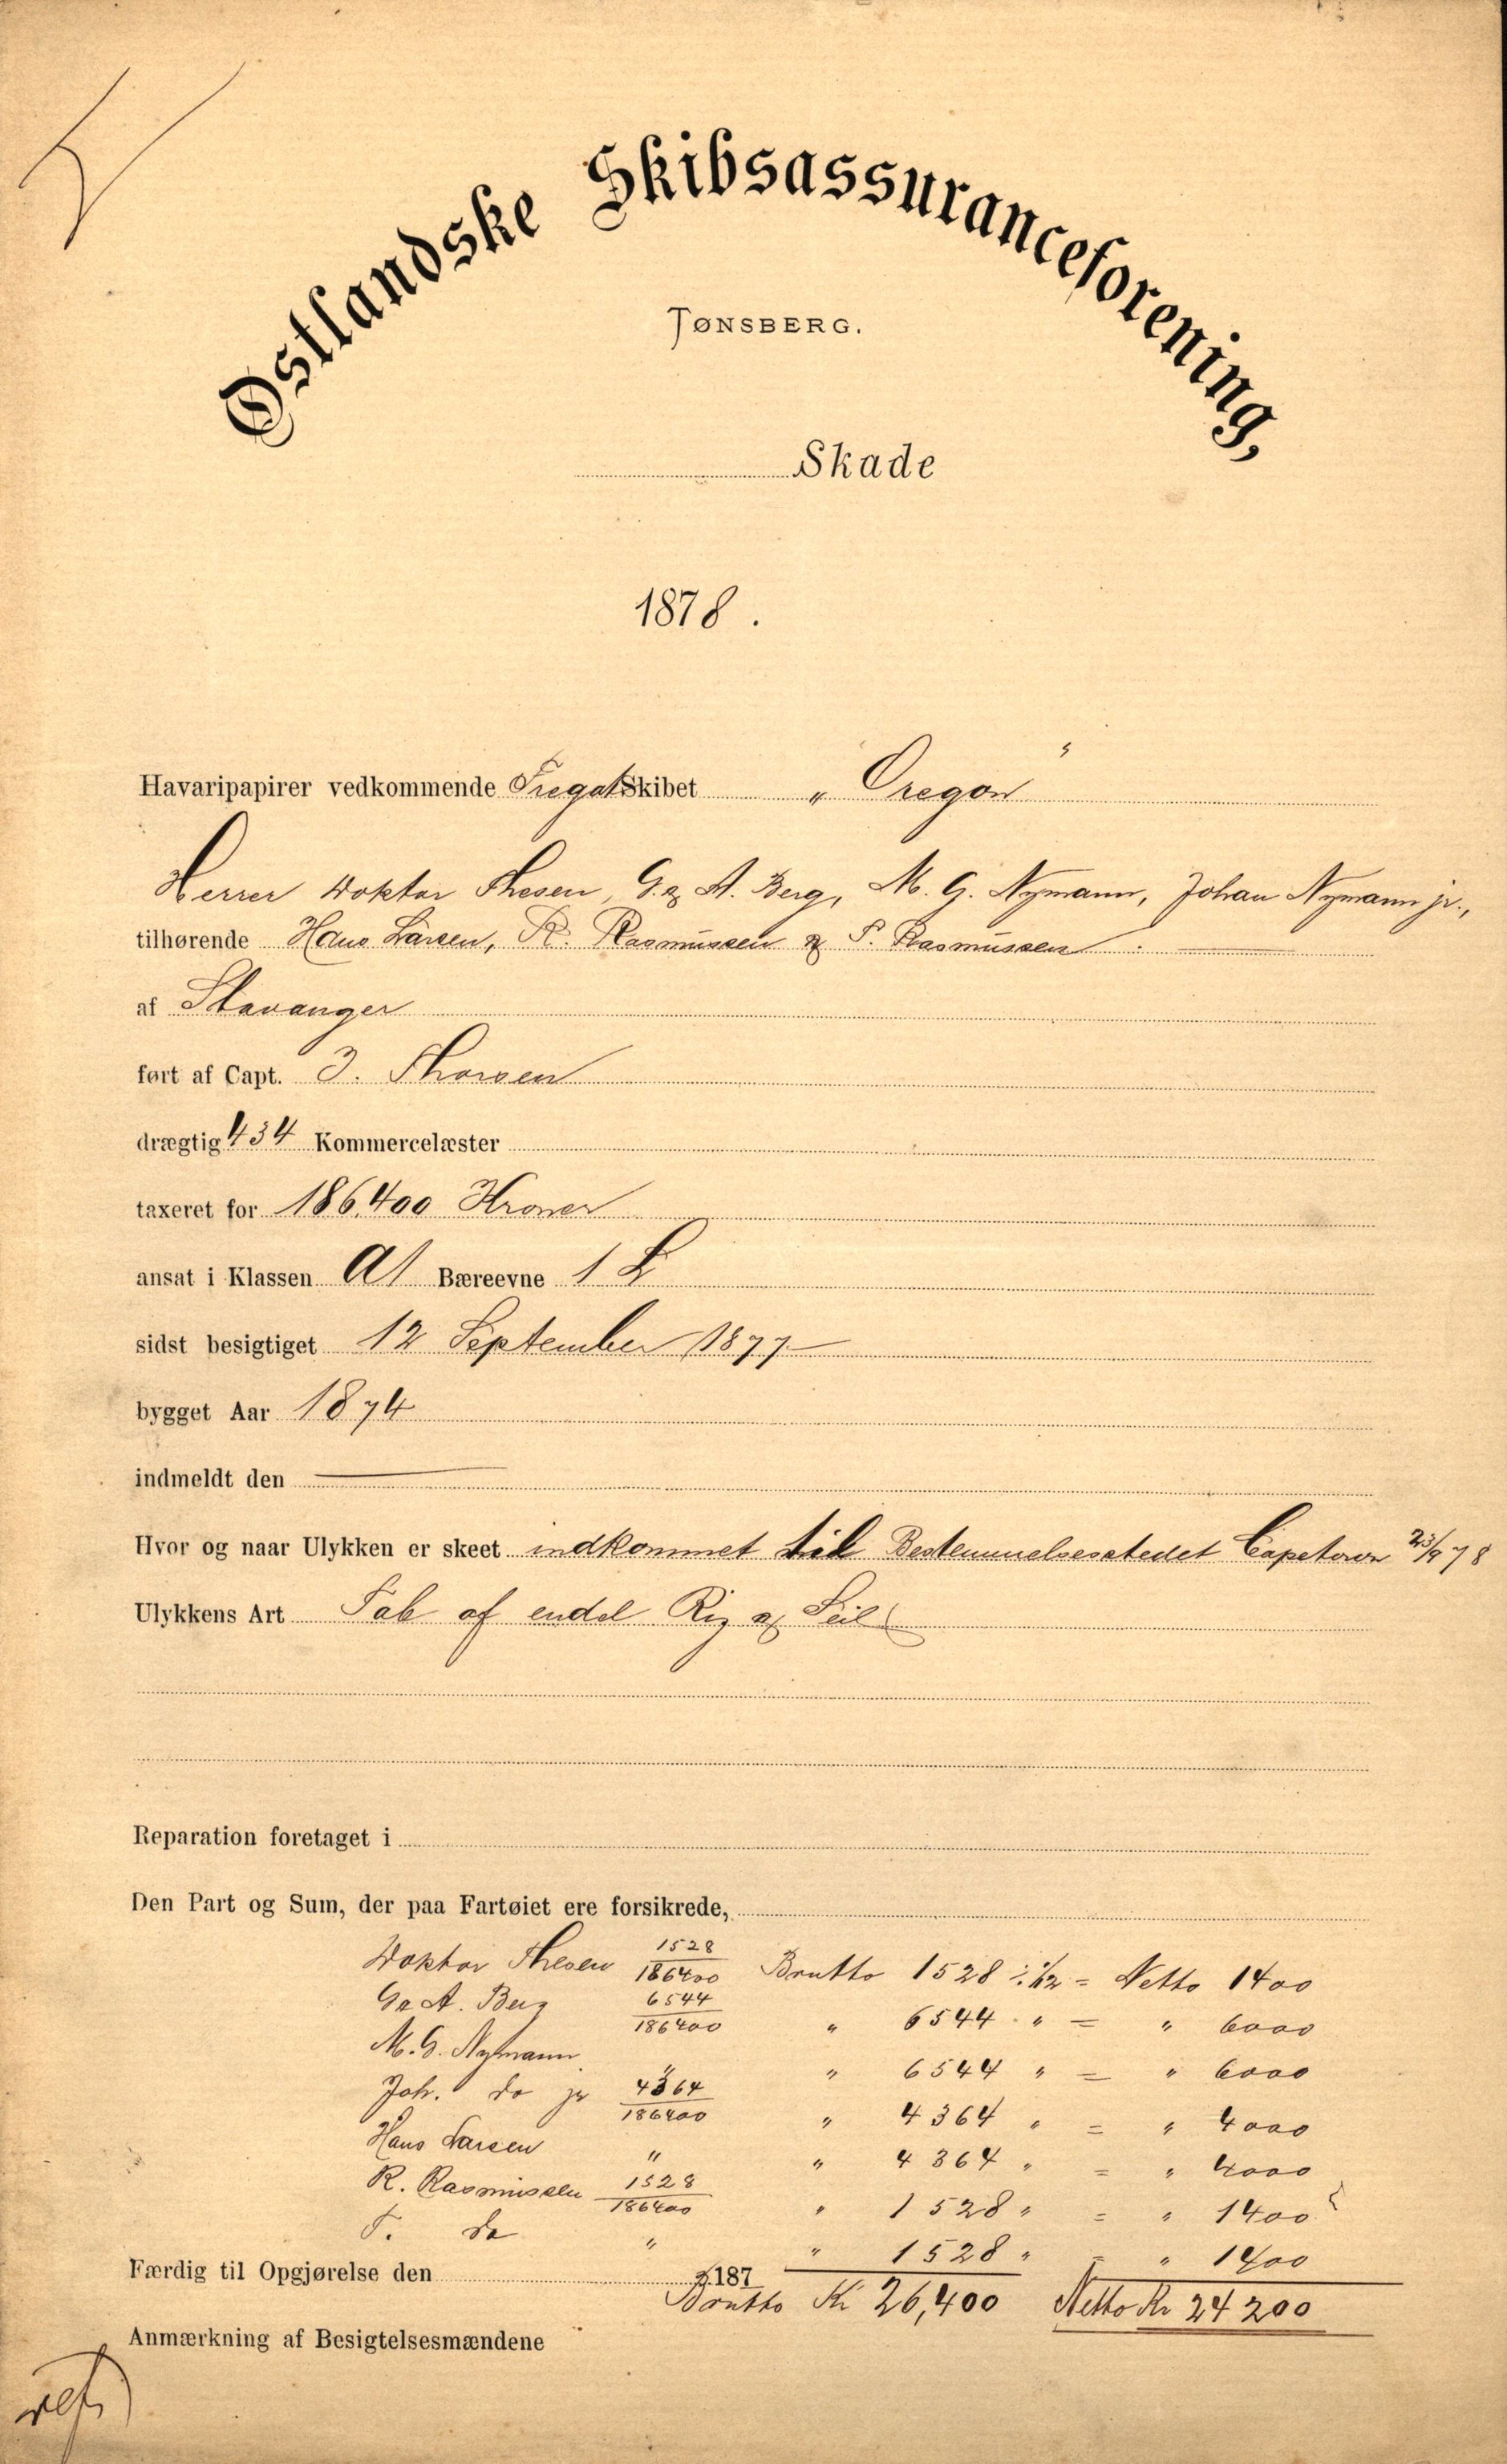 Østlandske Skibsassuranceforening,
TØNSBERG.
Skade
1878.
Havaripapirer vedkommende Fregatskibet „Oregon"
Herrer Doktor Thesen, G. & A. Berg, M. G. Nymann, Johan Nymann jr.,
tilhørende Hans Larsen, R. Rasmussen & T. Rasmussen.
af Stavanger
ført af Capt. J. Thorsen
drægtig 434 Kommercelæster
taxeret for 186,400 Kroner
ansat i Klassen A1 Bæreevne 1 L
sidst besigtiget 12 September 1877
bygget Aar 1874
indmeldt den —
Hvor og naar Ulykken er skeet indkommet til Bestemmelsesstedet Capetown 23/9 78
Ulykkens Art Tab af endel Rig & Seil
Reparation foretaget i
Den Part og Sum, der paa Fartøiet ere forsikrede,
Doktor Thesen 1528/186400 Brutto 1528 ÷ 1/12 = Netto 1400
G & A. Berg 6544/186400 " 6544 " = " 6000
M. G. Nymann " " 6544 " = " 6000
Joh. do jr 4364/186400 " 4364 " = " 4000
Hans Larsen " " 4364 " = " 4000
R. Rasmussen 1528/186400 " 1528 " = " 1400
T. do " " 1528 " = " 1400
Færdig til Opgjørelse den 187
Brutto Kr 26,400 Netto Kr 24200
Anmærkning af Besigtelsesmændene